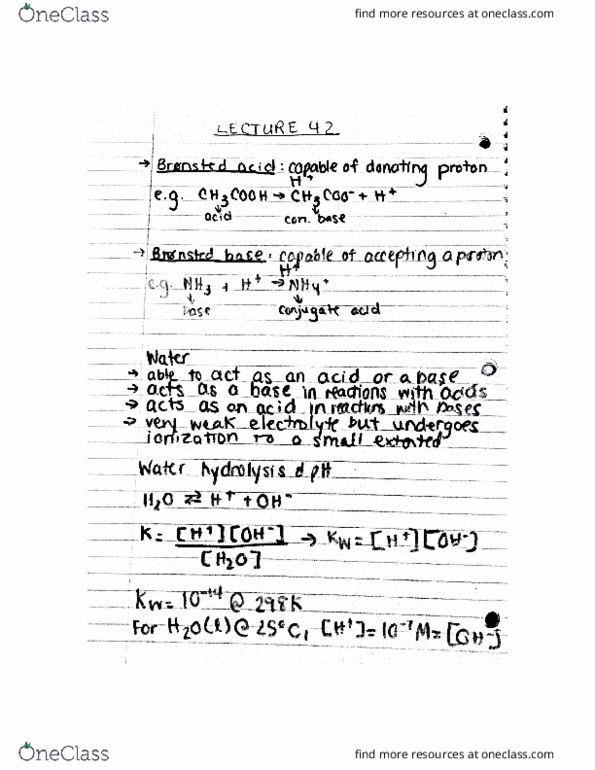 OneClass
find more resources at oneclass.com
LECTURE 42
→ Brønsted acid: capable of donating proton
H⁺
e.g. CH₃COOH → CH₃COO⁻ + H⁺
acid con. base
→ Brønsted base: capable of accepting a proton
H⁺
e.g. NH₃ + H⁺ → NH₄⁺
base conjugate acid
Water
→ able to act as an acid or a base
→ acts as a base in reactions with acids
→ acts as an acid in reactions with bases
→ very weak electrolyte but undergoes
ionization to a small extented
Water hydrolysis & pH
H₂O ⇌ H⁺ + OH⁻
K = [H⁺][OH⁻] → Kw = [H⁺][OH⁻]
[H₂O]
Kw = 10⁻¹⁴ @ 298K
For H₂O(l) @ 25°C, [H⁺] = 10⁻⁷M = [OH⁻]
OneClass
find more resources at oneclass.com